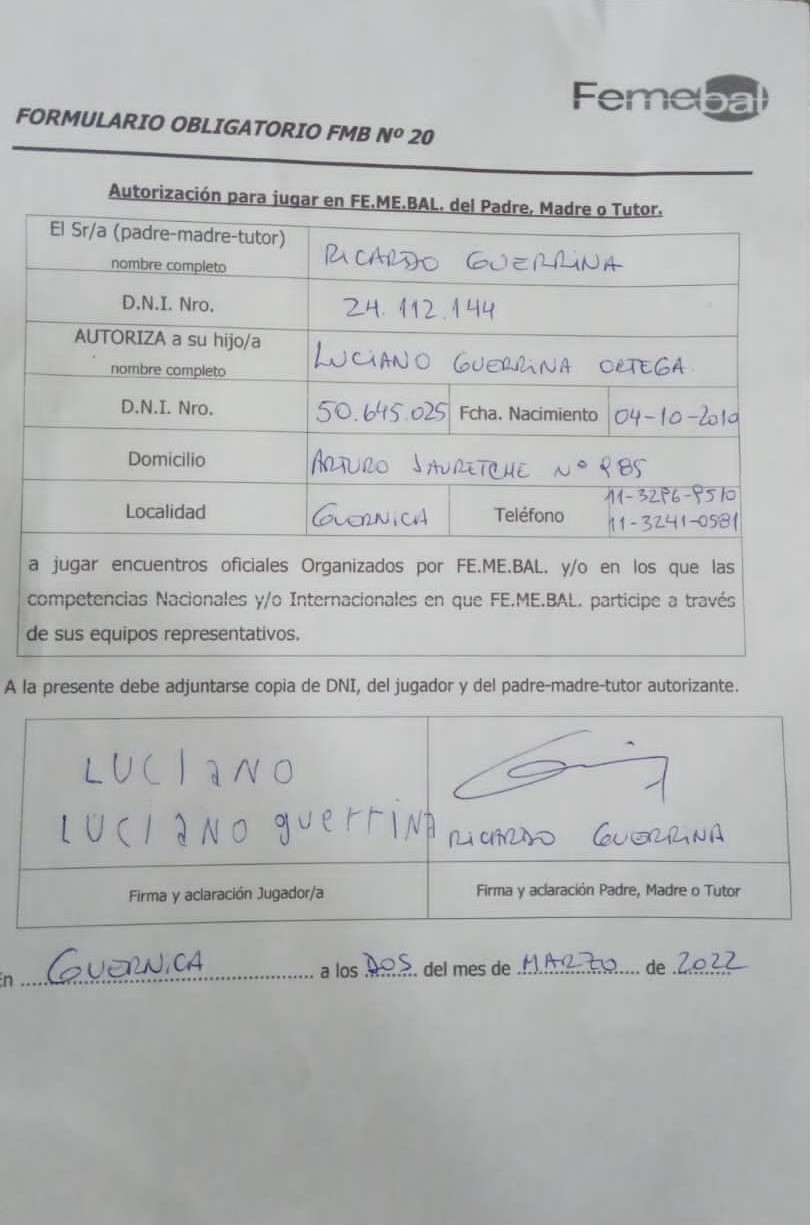 Femebal
FORMULARIO OBLIGATORIO FMB Nº 20
Autorización para jugar en FE.ME.BAL. del Padre, Madre o Tutor.
El Sr/a (padre-madre-tutor)
nombre completo
RICARDO GUERRINA
D.N.I. Nro.
24.112.144
AUTORIZA a su hijo/a
nombre completo
LUCIANO GUERRINA ORTEGA.
D.N.I. Nro.
50.645.025
Fcha. Nacimiento
04-10-2010
Domicilio
ARTURO JAURETCHE Nº 985
Localidad
GUERNICA
Teléfono
11-3296-9510
11-3241-0581
a jugar encuentros oficiales Organizados por FE.ME.BAL. y/o en los que las
competencias Nacionales y/o Internacionales en que FE.ME.BAL. participe a través
de sus equipos representativos.
A la presente debe adjuntarse copia de DNI, del jugador y del padre-madre-tutor autorizante.
LUCIANO
LUCIANO guerrina
RICARDO GUERRINA
Firma y aclaración Jugador/a
Firma y aclaración Padre, Madre o Tutor
En GUERNICA a los DOS del mes de MARZO de 2022